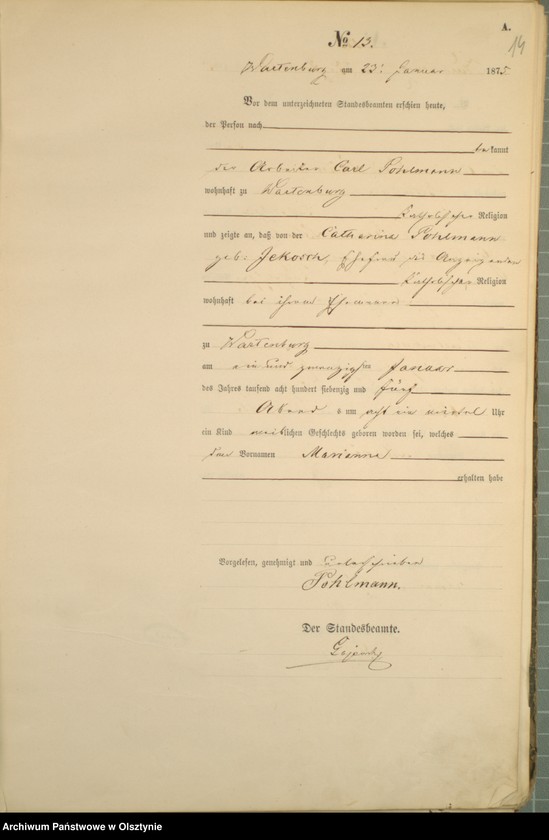 A.
14
No 13.
Wartenburg am 23. Januar 1875
Vor dem unterzeichneten Standesbeamten erschien heute,
der Person nach
bekannt
der Arbeiter Carl Pohlmann
wohnhaft zu Wartenburg
katholischer Religion
und zeigte an, daß von der Catharina Pohlmann
geb: Jekosch, Ehefrau des Anzeigenden
katholischer Religion
wohnhaft bei ihrem Ehemanne
zu Wartenburg
am ein und zwanzigsten Januar
des Jahres tausend acht hundert siebenzig und fünf
Abends um acht ein viertel Uhr
ein Kind weiblichen Geschlechts geboren worden sei, welches
den Vornamen Marianna
erhalten habe
Vorgelesen, genehmigt und unterschrieben
Pohlmann.
Der Standesbeamte.
Archiwum Państwowe w Olsztynie